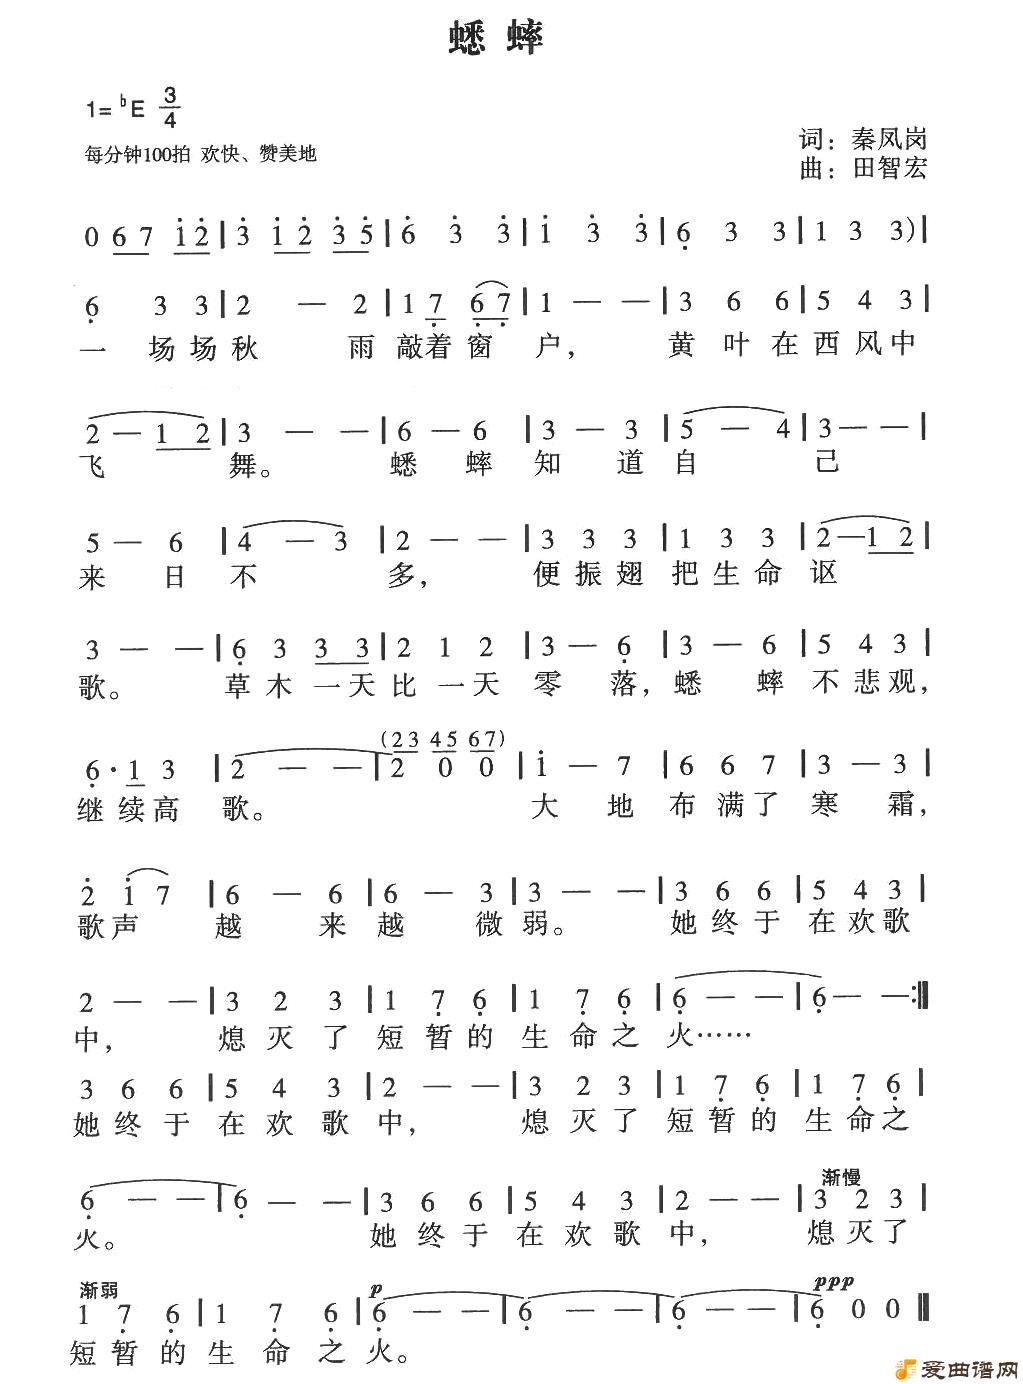 蟋蟀
1= ♭E 3/4
每分钟100拍 欢快、赞美地
词：秦凤岗
曲：田智宏
0 6 7 1 2 | 3 1 2 3 5 | 6 3 3 | 1 3 3 | 6 3 3 | 1 3 3) |
6 3 3 | 2 — 2 | 1 7 6 7 | 1 — — | 3 6 6 | 5 4 3 |
一 场 场 秋 雨 敲着 窗 户， 黄 叶 在 西 风 中
2 — 1 2 | 3 — — | 6 — 6 | 3 — 3 | 5 — 4 | 3 — — |
飞 舞。 蟋 蟀 知 道 自 己
5 — 6 | 4 — 3 | 2 — — | 3 3 3 | 1 3 3 | 2 — 1 2 |
来 日 不 多， 便 振 翅 把 生 命 讴
3 — — | 6 3 3 3 | 2 1 2 | 3 — 6 | 3 — 6 | 5 4 3 |
歌。 草 木 一 天 比 一 天 零 落， 蟋 蟀 不 悲 观，
(2 3 4 5 6 7)
6 · 1 3 | 2 — — | 2 0 0 | 1 — 7 | 6 6 7 | 3 — 3 |
继 续 高 歌。 大 地 布 满 了 寒 霜，
2 1 7 | 6 — 6 | 6 — 3 | 3 — — | 3 6 6 | 5 4 3 |
歌 声 越 来 越 微 弱。 她 终 于 在 欢 歌
2 — — | 3 2 3 | 1 7 6 | 1 7 6 | 6 — — | 6 — — :‖
中， 熄 灭 了 短 暂 的 生 命 之 火……
3 6 6 | 5 4 3 | 2 — — | 3 2 3 | 1 7 6 | 1 7 6 |
她 终 于 在 欢 歌 中， 熄 灭 了 短 暂 的 生 命 之
渐慢
6 — — | 6 — — | 3 6 6 | 5 4 3 | 2 — — | 3 2 3 |
火。 她 终 于 在 欢 歌 中， 熄 灭 了
渐弱 p ppp
1 7 6 | 1 7 6 | 6 — — | 6 — — | 6 — — | 6 0 0 ‖
短 暂 的 生 命 之 火。
爱曲谱网